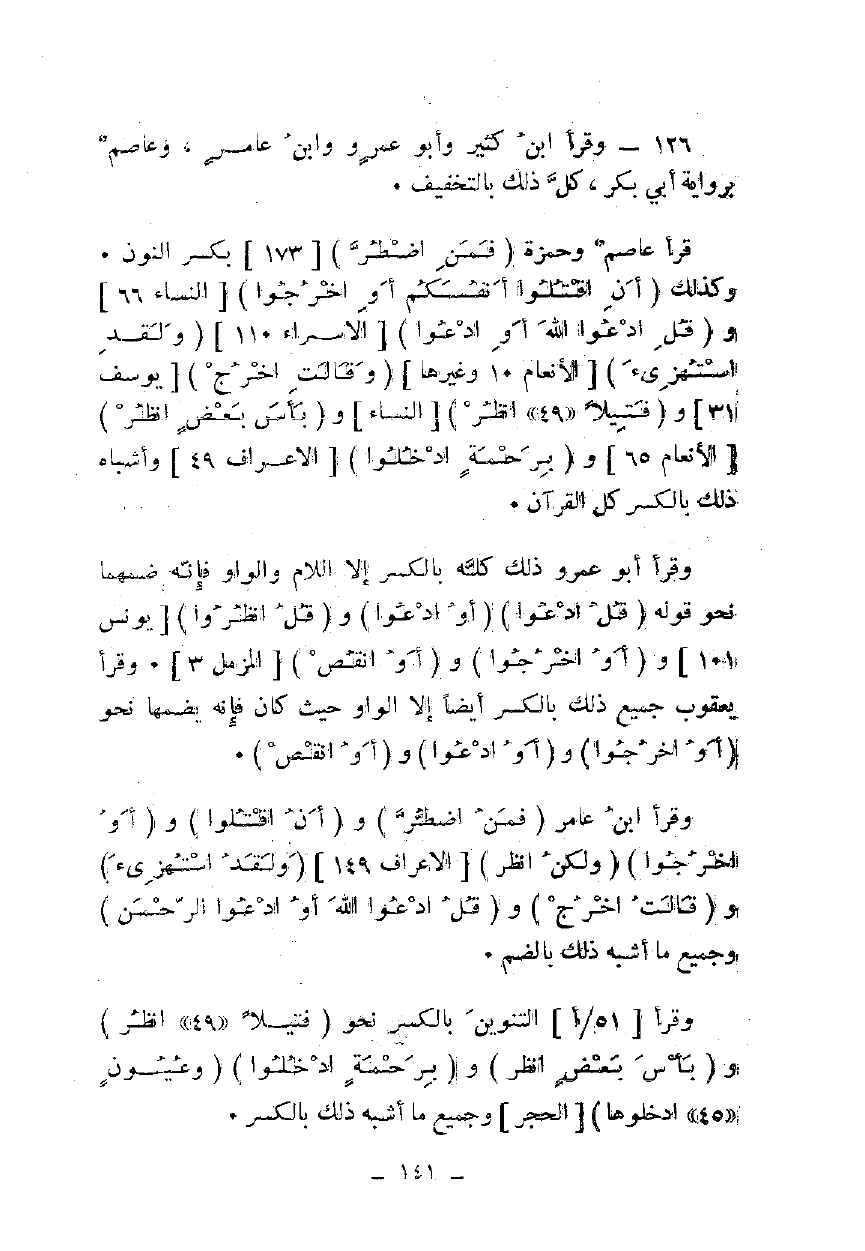 ١٢٦ – وقرأ ابنُ كثير وأبو عمرٍو وابنُ عامــرٍ ، وعاصمٌ
برواية أبي بكر ، كلَّ ذلك بالتخفيف .
قرأ عاصمٌ وحمزة ( فَمَنِ اضْطُرَّ ) [ ١٧٣ ] بكسر النون .
وكذلك ( أَنِ اقْتُلُوا أَنفُسَكُم أَوِ اخْرُجُوا ) [ النساء ٦٦ ]
و ( قُلِ ادْعُوا اللهَ أَوِ ادْعُوا ) [ الاسراء ١١٠ ] ( وَلَقَدِ
اسْتُهْزِىءَ ) [ الأنعام ١٠ وغيرها ] ( وَقَالَتِ اخْرُجْ ) [ يوسف
٣١ ] و ( فَتِيلاً «٤٩» انظُرْ ) [ النساء ] و ( بَأْسَ بَعْضٍ انظُرْ )
[ الأنعام ٦٥ ] و ( بِرَحْمَةٍ ادْخُلُوا ) [ الاعراف ٤٩ ] وأشباه
ذلك بالكسر كل القرآن .
وقرأ أبو عمرو ذلك كلَّه بالكسر إلا اللام والواو فإنّه ضمهما
نحو قوله ( قُلُ ادْعُوا ) ( أوُ ادْعُوا ) و ( قُلُ انظُرُوا ) [ يونس
١٠١ ] و ( أَوُ اخْرُجُوا ) و ( أَوُ انقُصْ ) [ المزمل ٣ ] . وقرأ
يعقوب جميع ذلك بالكسر أيضاً إلا الواو حيث كان فإنه يضمها نحو
( أَوُ اخرُجُوا ) و ( أَوُ ادْعُوا ) و ( أَوُ انقُصْ ) .
وقرأ ابنُ عامر ( فمَنُ اضطُرَّ ) و ( أَنُ اقْتُلُوا ) و ( أَوُ
اخْرُجُوا ) ( ولكنُ انظر ) [ الاعراف ١٤٩ ] ( وَلَقَدُ اسْتُهْزِىءَ )
و ( قَالَتُ اخْرُجْ ) و ( قُلُ ادْعُوا اللهَ أوُ ادْعُوا الرّحْمَن )
وجميع ما أشبه ذلك بالضم .
وقرأ [ ٥١/أ ] التنوينَ بالكسرِ نحو ( فتيــلاً «٤٩» انظُر )
و ( بَأْسَ بَعْضٍ انظر ) و ( بِرَحْمَةٍ ادْخُلُوا ) ( وعُيُــونٍ
«٤٥» ادخلوها ) [ الحجر ] وجميع ما أشبه ذلك بالكسر .
– ١٤١ –